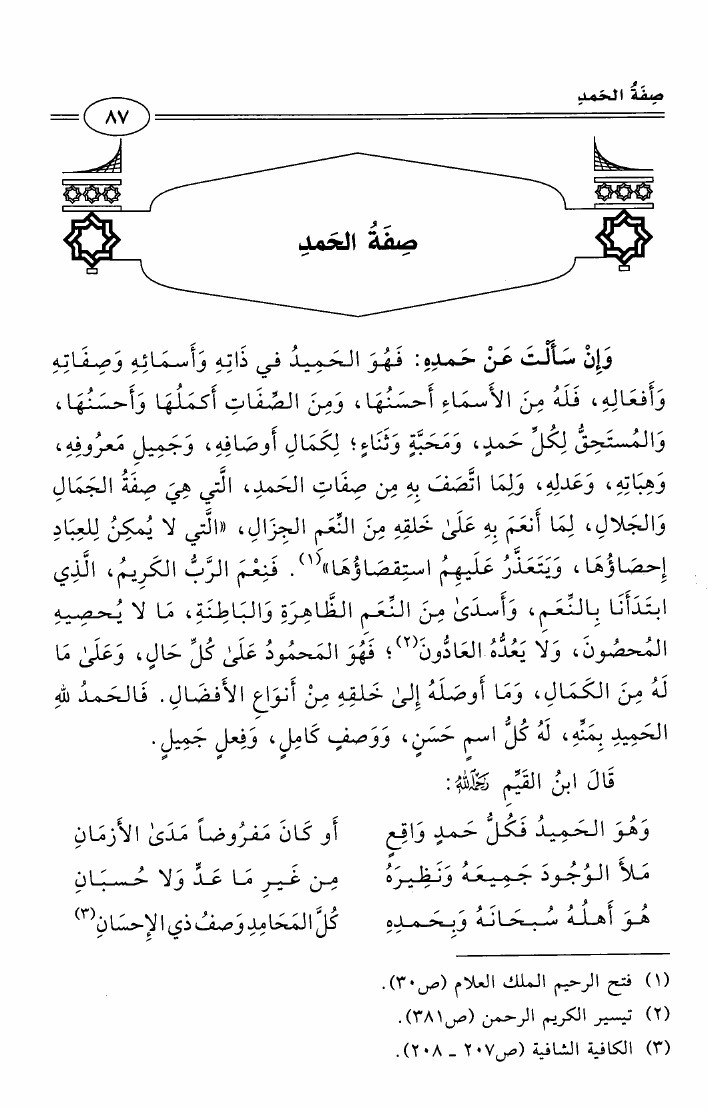 صِفَةُ الحَمدِ
٨٧
صِفَةُ الحَمدِ
وَإِنْ سَأَلْتَ عَنْ حَمدِهِ: فَهُوَ الحَمِيدُ في ذَاتِهِ وَأَسمَائِهِ وَصِفَاتِهِ
وَأَفعَالِهِ، فَلَهُ مِنَ الأَسمَاءِ أَحسَنُهَا، وَمِنَ الصِّفَاتِ أَكمَلُهَا وَأَحسَنُهَا،
وَالمُستَحِقُّ لِكُلِّ حَمدٍ، وَمَحَبَّةٍ وَثَنَاءٍ؛ لِكَمَالِ أَوصَافِهِ، وَجَمِيلِ مَعرُوفِهِ،
وَهِبَاتِهِ، وَعَدلِهِ، وَلِمَا اتَّصَفَ بِهِ مِن صِفَاتِ الحَمدِ، الَّتِي هِيَ صِفَةُ الجَمَالِ
وَالجَلالِ، لِمَا أَنعَمَ بِهِ عَلَىٰ خَلقِهِ مِنَ النِّعَمِ الجِزَالِ، «الَّتي لا يُمكِنُ لِلعِبَادِ
إِحصَاؤُهَا، وَيَتَعَذَّرُ عَلَيهِمُ استِقصَاؤُهَا»(١). فَنِعْمَ الرَّبُّ الكَرِيمُ، الَّذِي
ابتَدَأَنَا بِالنِّعَمِ، وَأَسدَىٰ مِنَ النِّعَمِ الظَّاهِرَةِ وَالبَاطِنَةِ، مَا لا يُحصِيهِ
المُحصُونَ، وَلا يَعُدُّهُ العَادُّونَ(٢)؛ فَهُوَ المَحمُودُ عَلَىٰ كُلِّ حَالٍ، وَعَلَىٰ مَا
لَهُ مِنَ الكَمَالِ، وَمَا أَوصَلَهُ إِلىٰ خَلقِهِ مِنْ أَنوَاعِ الأَفضَالِ. فَالحَمدُ للهِ
الحَمِيدِ بِمَنِّهِ، لَهُ كُلُّ اسمٍ حَسَنٍ، وَوَصفٍ كَامِلٍ، وَفِعلٍ جَمِيلٍ.
قَالَ ابنُ القَيِّمِ رَحِمَهُ اللهُ:
وَهُوَ الحَمِيدُ فَكُلُّ حَمدٍ وَاقِعٍ أَو كَانَ مَفرُوضاً مَدَىٰ الأَزمَانِ
مَلأَ الوُجُودَ جَمِيعَهُ وَنَظِيرَهُ مِن غَيرِ مَا عَدٍّ وَلا حُسبَانِ
هُوَ أَهلُهُ سُبحَانَهُ وَبِحَمدِهِ كُلَّ المَحَامِدِ وَصفُ ذي الإِحسَانِ(٣)
(١) فتح الرحيم الملك العلام (ص٣٠).
(٢) تيسير الكريم الرحمن (ص٣٨١).
(٣) الكافية الشافية (ص٢٠٧ ـ ٢٠٨).